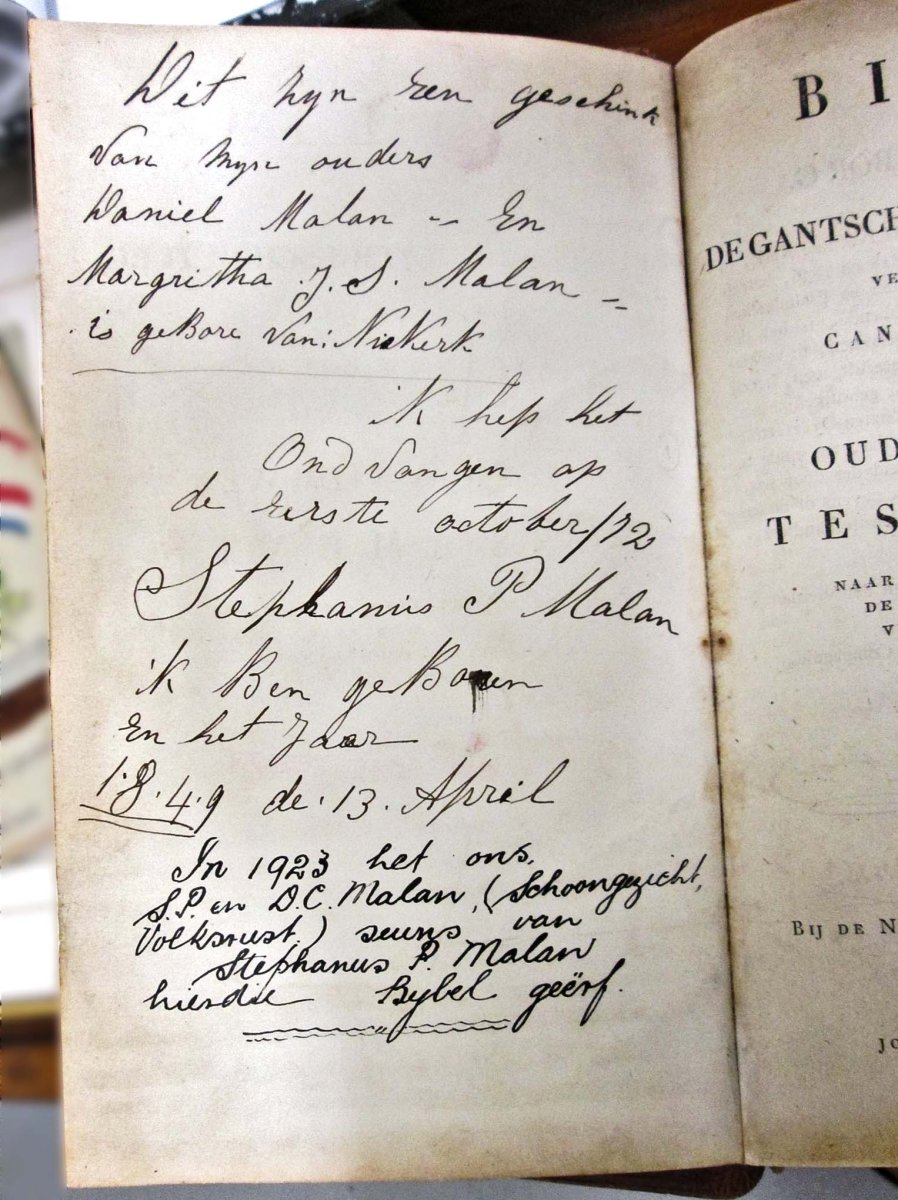 Dit zyn een geschink
van myn ouders
Daniel Malan - En
Margritha J. S. Malan -
is geBore van: NieKerk
ik heb het
Ond vangen op
de eerste october/72
Stephanus P Malan
ik Ben geBoren
en het Jaar
1.8.4.9 de. 13. April
In 1923 het ons,
S.P. en D.C. Malan, (Schoongezicht,
Volksrust,) seuns van
Stephanus P. Malan
hierdie Bybel geërf.
BI
DE GANTSCH
VE
CAN
OUD
TES
NAAR
DE
V
BIJ DE N
JO